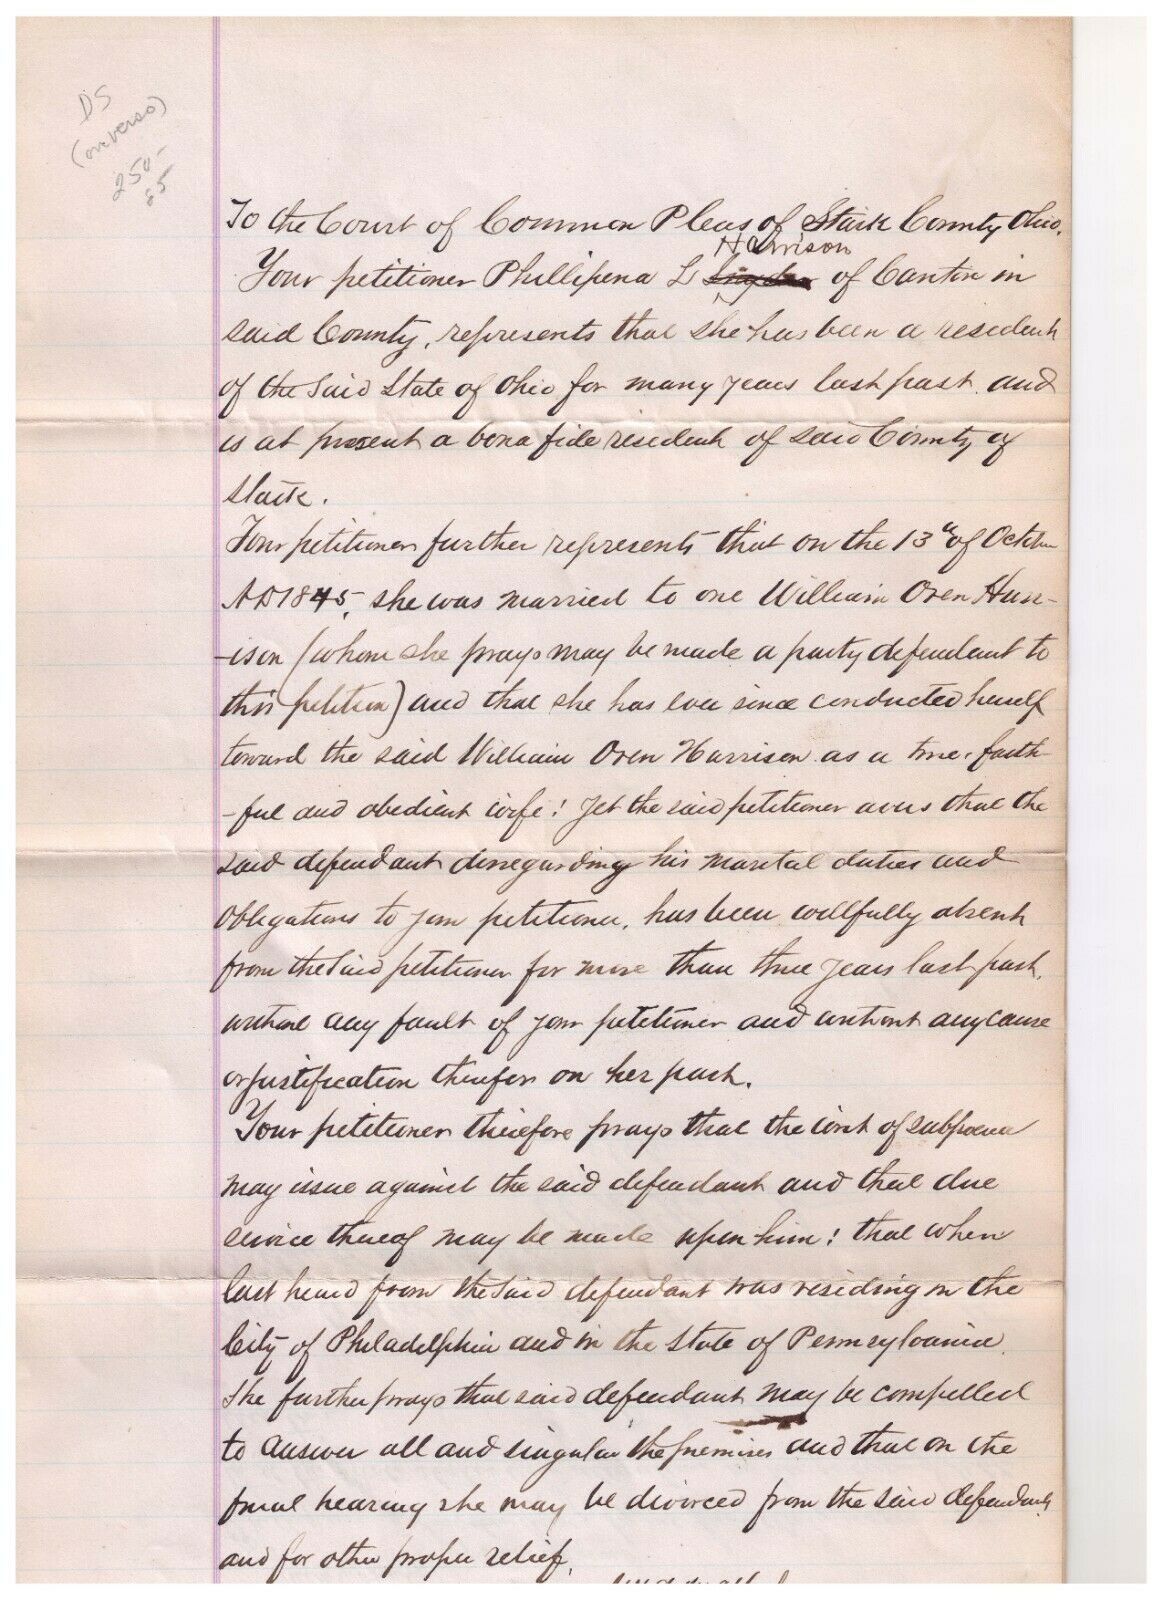 DS
(on verso)
250-
85
To the Court of Common Pleas of Stark County Ohio.
Harrison
Your petitioner Phillipena L Snyder of Canton in
said County, represents that she has been a resident
of the said State of Ohio for many years last past and
is at present a bona fide resident of said County of
Stark.
Your petitioner further represents that on the 13th of October
AD 1845, she was married to one William Oren Harr-
-ison (whom she prays may be made a party defendant to
this petition) and that she has ever since conducted herself
toward the said William Oren Harrison as a true, faith-
-ful and obedient wife! Yet the said petitioner avers that the
said defendant disregarding his marital duties and
obligations to your petitioner, has been willfully absent
from the said petitioner for more than three years last past,
without any fault of your petitioner and without any cause
or justification therefor on her part.
Your petitioner therefore prays that the writ of subpoena
may issue against the said defendant and that due
service thereof may be made upon him! that when
last heard from the said defendant was residing in the
City of Philadelphia and in the State of Pennsylvania.
She further prays that said defendant may be compelled
to answer all and singular the premises and that on the
final hearing she may be divorced from the said defendant
and for other proper relief.